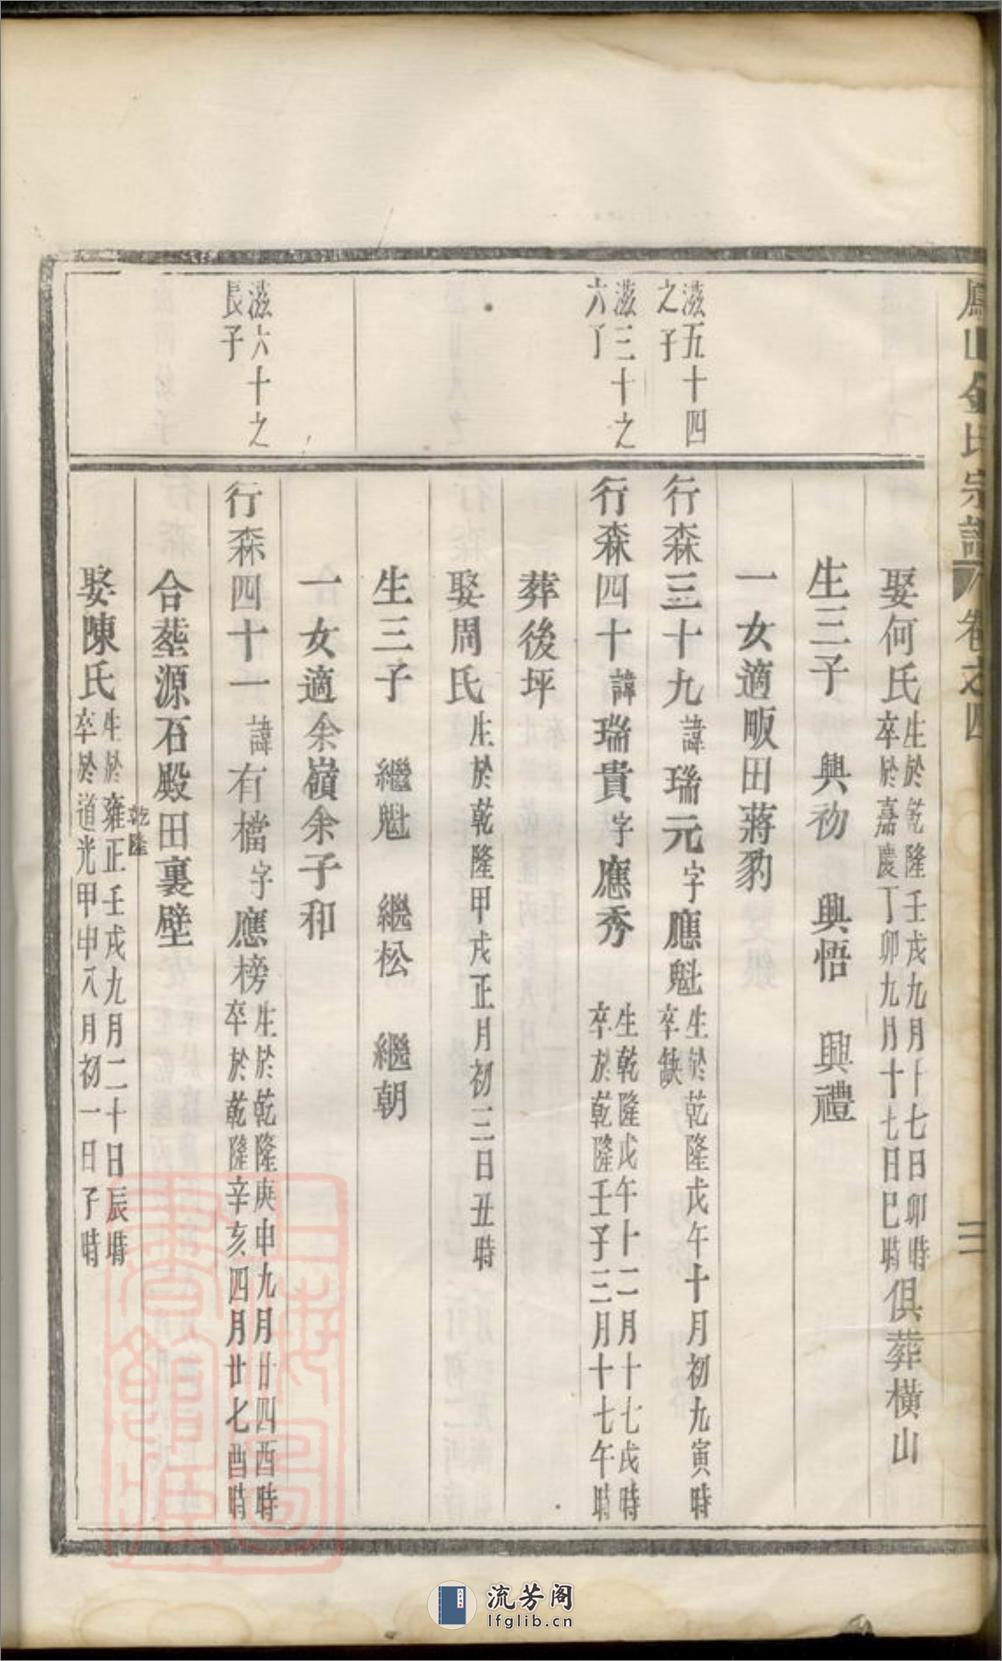 鳳山金氏宗譜 卷之四 三
娶何氏 生於乾隆壬戌九月十七日卯時 卒於嘉慶丁卯九月十七日巳時 俱葬橫山
生三子 興初 興悟 興禮
一女適畈田蔣豹
滋五十四之子
行森三十九 諱瑞元 字應魁 生於乾隆戊午十月初九寅時 卒缺
滋三十之六丁
行森四十 諱瑞貴 字應秀 生乾隆戊午十二月十七戌時 卒於乾隆壬子三月十七午時
葬後坪
娶周氏 生於乾隆甲戌正月初三日丑時
生三子 繼魁 繼松 繼朝
一女適余嶺余子和
滋六十之長子
行森四十一 諱有檔 字應榜 生於乾隆庚申九月廿四酉時 卒於乾隆辛亥四月廿七酉時
合塟源石殿田裏壁
娶陳氏 生於雍正壬戌九月二十日辰時 卒於道光甲申八月初一日子時
乾隆
上海圖書館藏
流芳阁
lfglib.cn